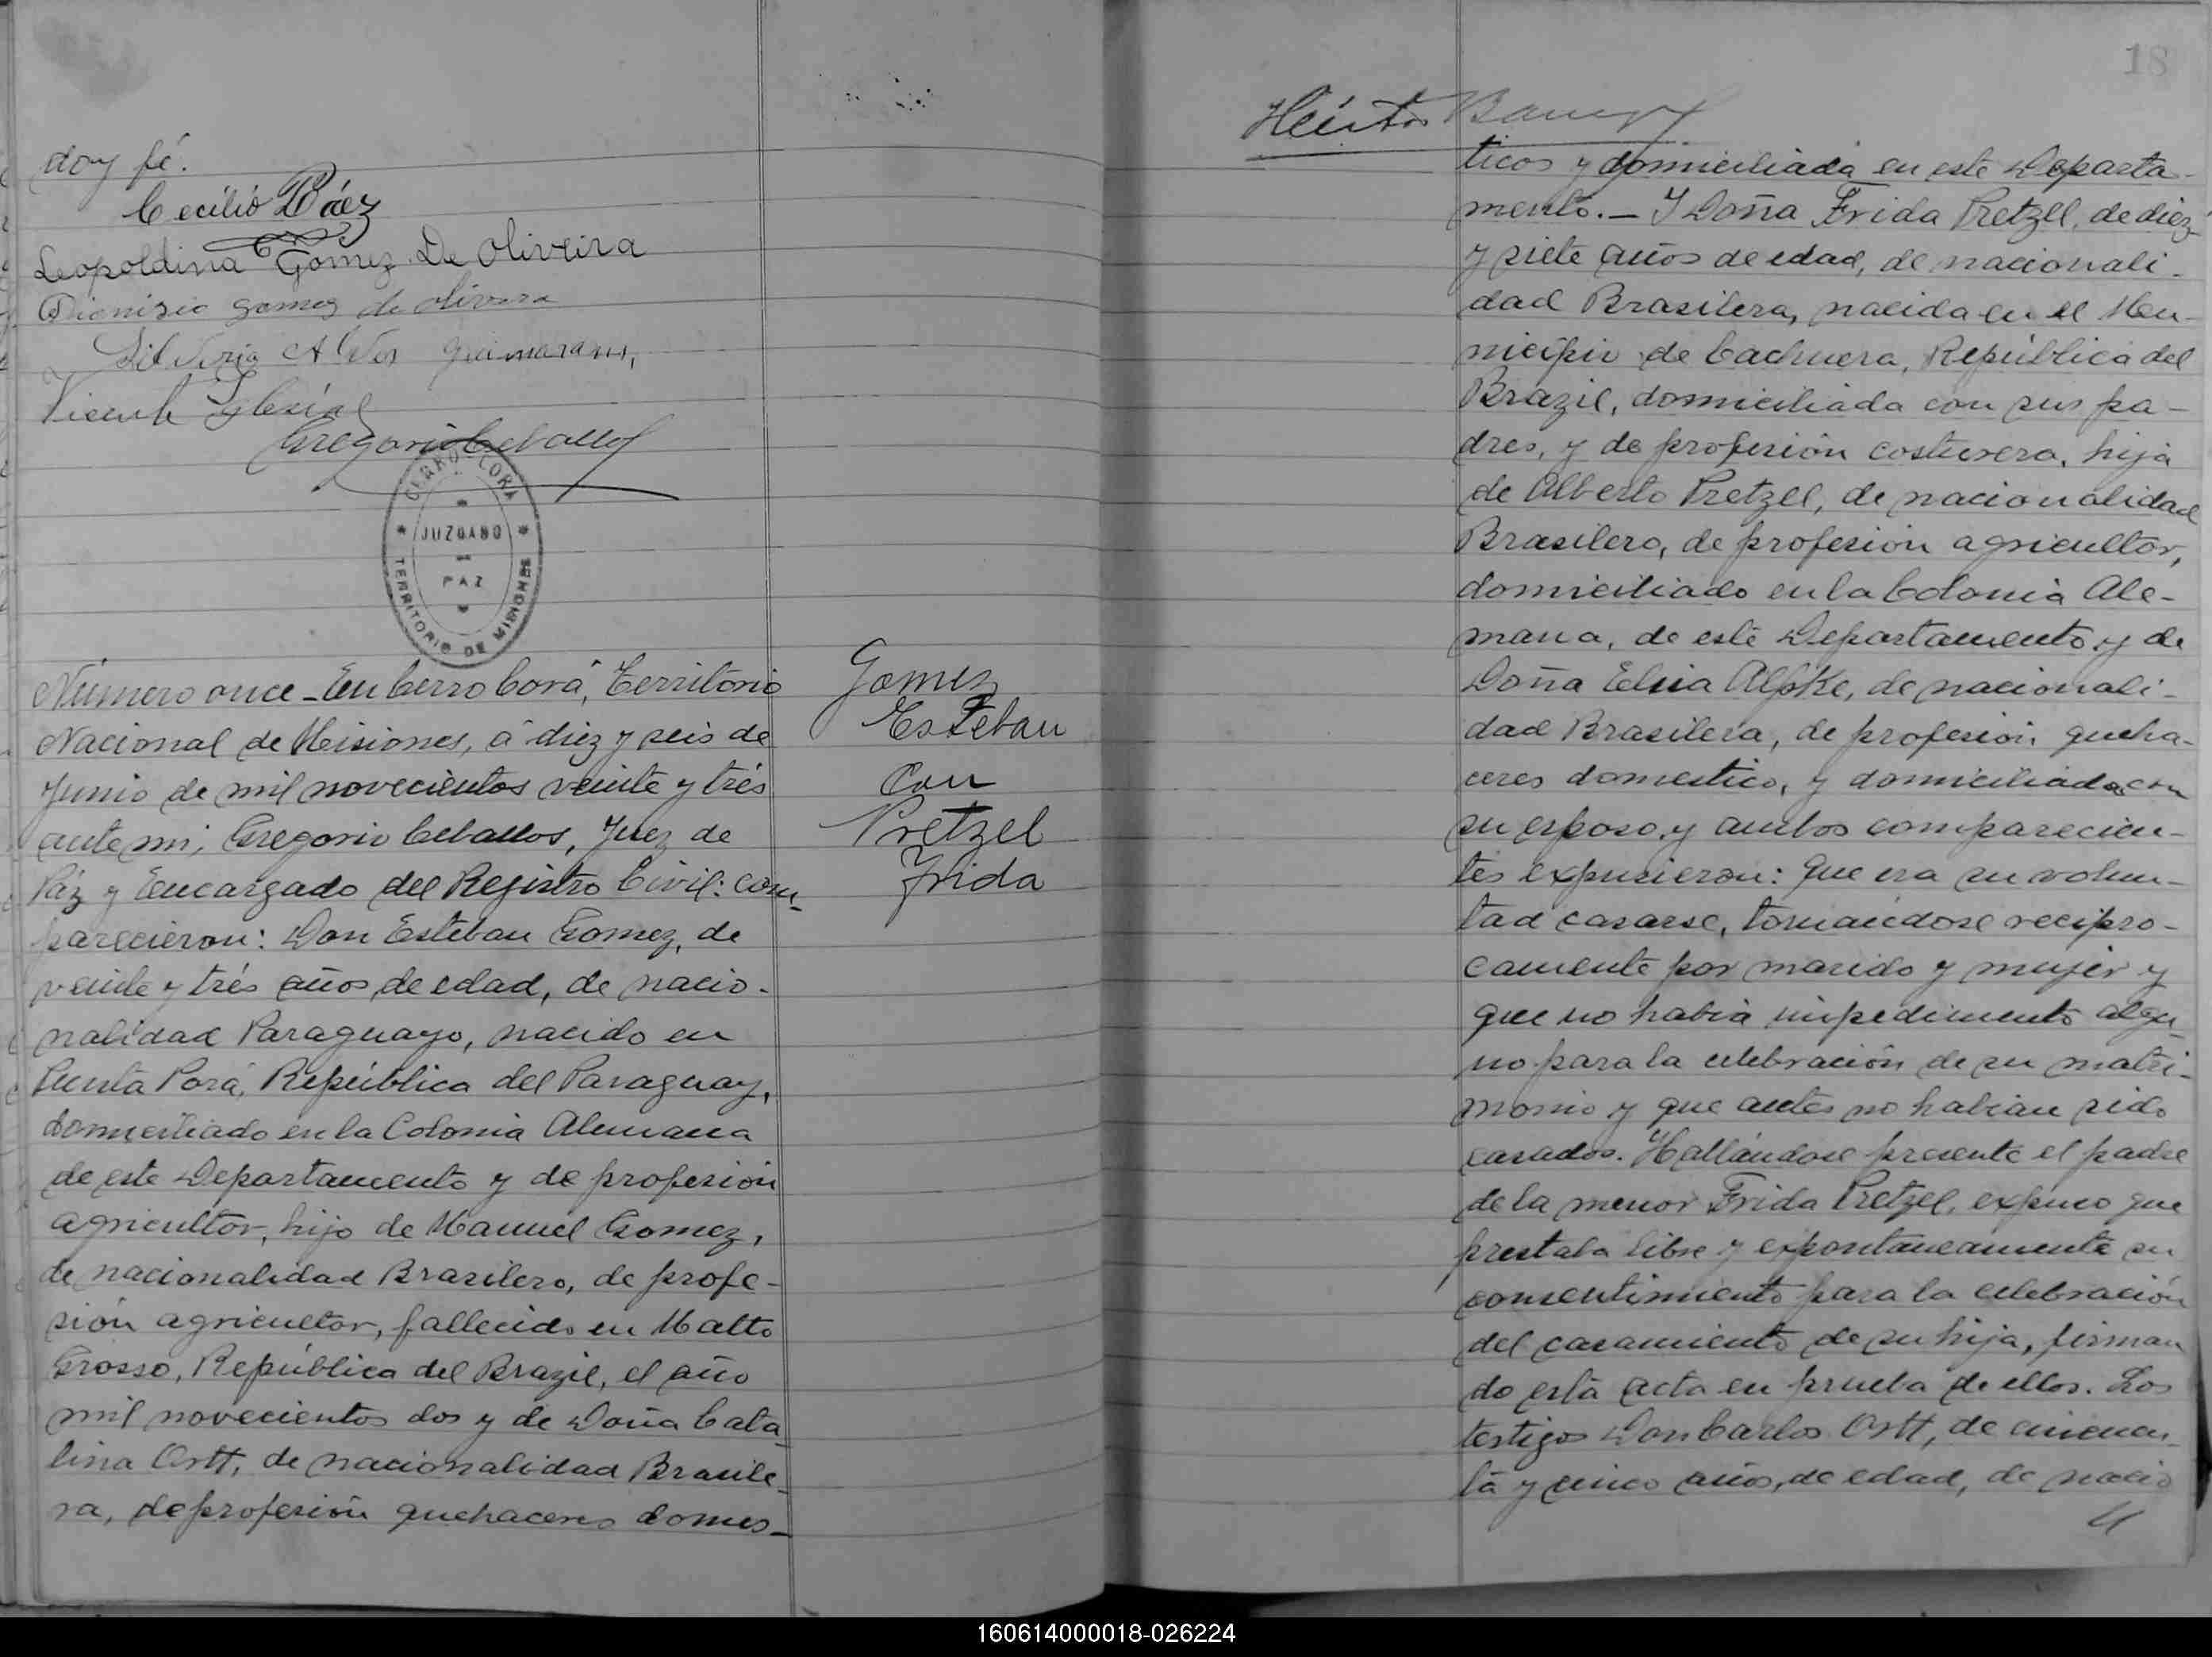 doy fé.
Cecilio Páez
Leopoldina Gomez De Oliveira
Dionisio Gomez de Olivera
Vicente Iglesias
Gregorio Ceballos
CERRO-CORA
JUZGADO
PAZ
TERRITORIO DE MISIONES
Número once - En Cerro Corá, Territorio
Nacional de Misiones, á diez y seis de
Junio de mil novecientos veinte y trés
ante mi, Gregorio Ceballos, Juez de
Páz y Encargado del Registro Civil: com-
parecieron: Don Esteban Gomez, de
veinte y trés años de edad, de nacio-
nalidad Paraguayo, nacido en
Punta Porá, República del Paraguay,
domiciliado en la Colonia Alemana
de este Departamento y de profesión
agricultor, hijo de Manuel Gomez,
de nacionalidad Brasilero, de profe-
sión agricultor, fallecido en Matto
Grosso, República del Brazil, el año
mil novecientos dos y de Doña Cata-
lina Ostt, de nacionalidad Brasile-
ra, de profesión quehaceres domes-
Gomez
Esteban
Con
Pretzel
Frida
18
Héctor
ticos y domiciliada en este Departa-
mento. - Y Doña Frida Pretzel, de diez
y siete años de edad, de nacionali-
dad Brasilera, nacida en el Mu-
nicipio de Cachuera, República del
Brazil, domiciliada con sus pa-
dres, y de profesión costurera, hija
de Alberto Pretzel, de nacionalidad
Brasilero, de profesión agricultor,
domiciliado en la Colonia Ale-
mana, de este Departamento y de
Doña Elsia Alpke, de nacionali-
dad Brasilera, de profesión queha-
ceres domestico, y domiciliada con
su esposo, y ambos comparecien-
tes expusieron: Que era su volun-
tad casarse, tomandose recipro-
camente por marido y mujer y
que no habia impedimento algu-
no para la celebración de su matri-
monio y que antes no habian sido
casados. Hallándose presente el padre
de la menor Frida Pretzel, expuso que
prestaba libre y expontaneamente su
consentimiento para la celebración
del casamiento de su hija, firman
do esta acta en prueba de ellos. Los
testigos Don Carlos Ostt, de cincuen-
ta y cinco años, de edad, de nacio
160614000018-026224